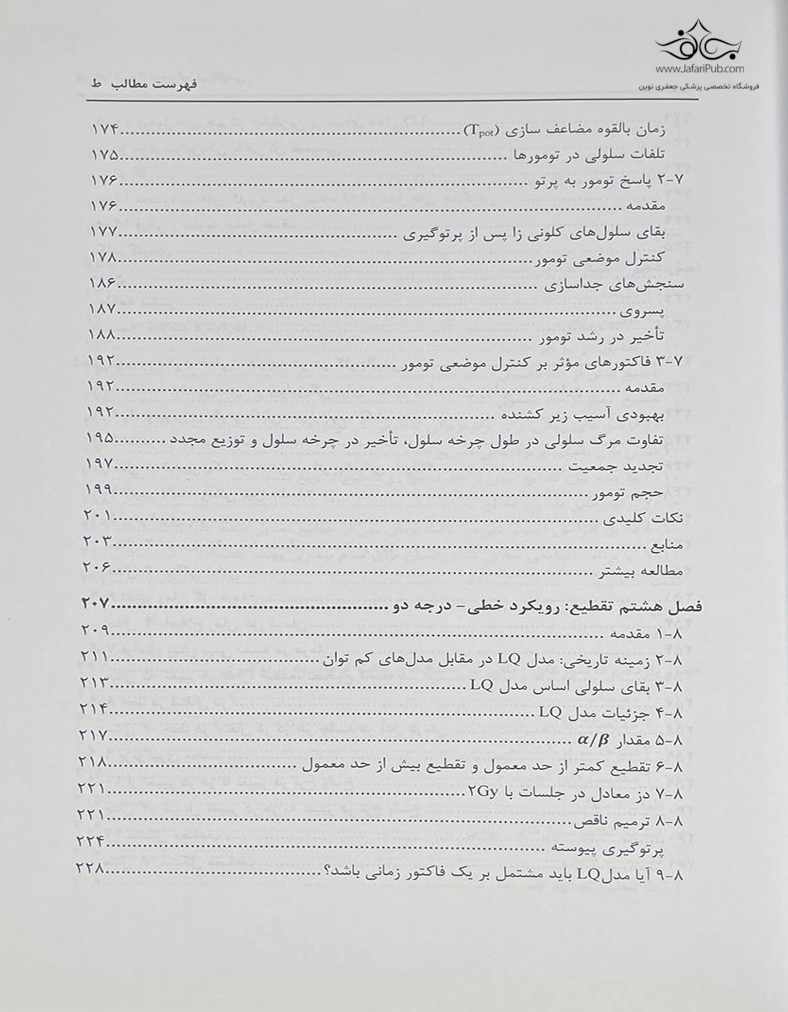 www.JafariPub.com
فروشگاه تخصصی پزشکی جعفری نوین
فهرست مطالب ط
زمان بالقوه مضاعف سازی (Tpot)...۱۷۴
تلفات سلولی در تومورها ...۱۷۵
۷-۲ پاسخ تومور به پرتو ...۱۷۶
مقدمه ...۱۷۶
بقای سلول‌های کلونی زا پس از پرتوگیری ...۱۷۷
کنترل موضعی تومور...۱۷۸
سنجش‌های جداسازی ...۱۸۶
پسروی...۱۸۷
تأخیر در رشد تومور ...۱۸۸
۷-۳ فاکتورهای مؤثر بر کنترل موضعی تومور ...۱۹۲
مقدمه ...۱۹۲
بهبودی آسیب زیر کشنده ...۱۹۲
تفاوت مرگ سلولی در طول چرخه سلول، تأخیر در چرخه سلول و توزیع مجدد ...۱۹۵
تجدید جمعیت ...۱۹۷
حجم تومور ...۱۹۹
نکات کلیدی ...۲۰۱
منابع ...۲۰۳
مطالعه بیشتر ...۲۰۶
فصل هشتم تقطیع: رویکرد خطی- درجه دو ...۲۰۷
۸-۱ مقدمه ...۲۰۹
۸-۲ زمینه تاریخی: مدل LQ در مقابل مدل‌های کم توان ...۲۱۱
۸-۳ بقای سلولی اساس مدل LQ ...۲۱۳
۸-۴ جزئیات مدل LQ ...۲۱۴
۸-۵ مقدار α/β ...۲۱۷
۸-۶ تقطیع کمتر از حد معمول و تقطیع بیش از حد معمول ...۲۱۸
۸-۷ دز معادل در جلسات با ۲Gy...۲۲۱
۸-۸ ترمیم ناقص...۲۲۱
پرتوگیری پیوسته ...۲۲۴
۸-۹ آیا مدلLQ باید مشتمل بر یک فاکتور زمانی باشد؟...۲۲۸